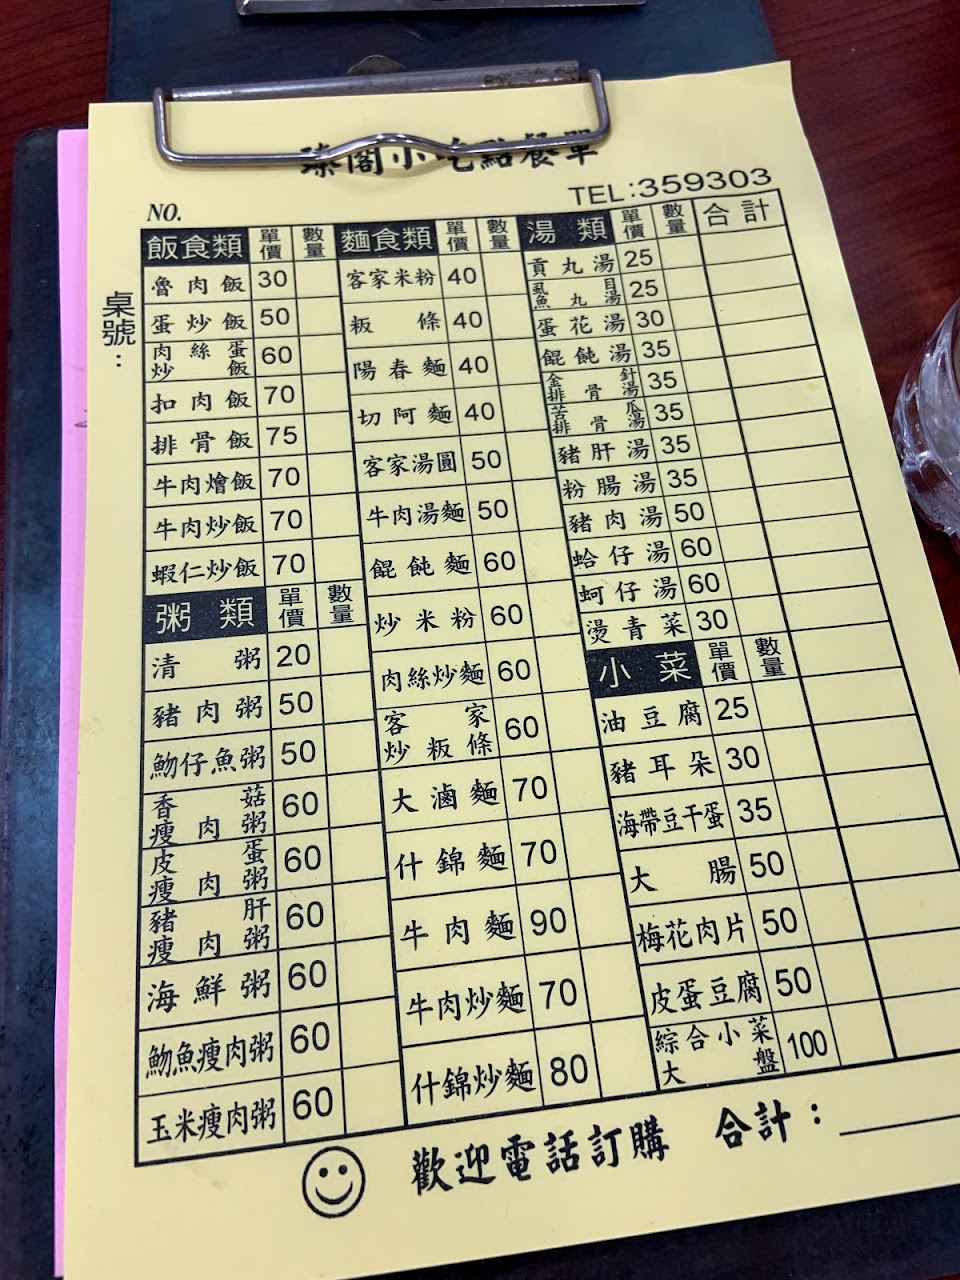 臻閣小吃點餐單
TEL:359303
NO.
桌號:
飯食類 單價 數量
魯肉飯 30
蛋炒飯 50
肉絲蛋炒飯 60
扣肉飯 70
排骨飯 75
牛肉燴飯 70
牛肉炒飯 70
蝦仁炒飯 70
粥類 單價 數量
清粥 20
豬肉粥 50
魩仔魚粥 50
香菇瘦肉粥 60
皮蛋瘦肉粥 60
豬肝瘦肉粥 60
海鮮粥 60
魩魚瘦肉粥 60
玉米瘦肉粥 60
麵食類 單價 數量
客家米粉 40
粄條 40
陽春麵 40
切阿麵 40
客家湯圓 50
牛肉湯麵 50
餛飩麵 60
炒米粉 60
肉絲炒麵 60
客家炒粄條 60
大滷麵 70
什錦麵 70
牛肉麵 90
牛肉炒麵 70
什錦炒麵 80
湯類 單價 數量 合計
貢丸湯 25
虱目魚丸湯 25
蛋花湯 30
餛飩湯 35
金針排骨湯 35
苦瓜排骨湯 35
豬肝湯 35
粉腸湯 35
豬肉湯 50
蛤仔湯 60
蚵仔湯 60
燙青菜 30
小菜 單價 數量
油豆腐 25
豬耳朵 30
海帶豆干蛋 35
大腸 50
梅花肉片 50
皮蛋豆腐 50
綜合小菜大盤 100
歡迎電話訂購 合計: